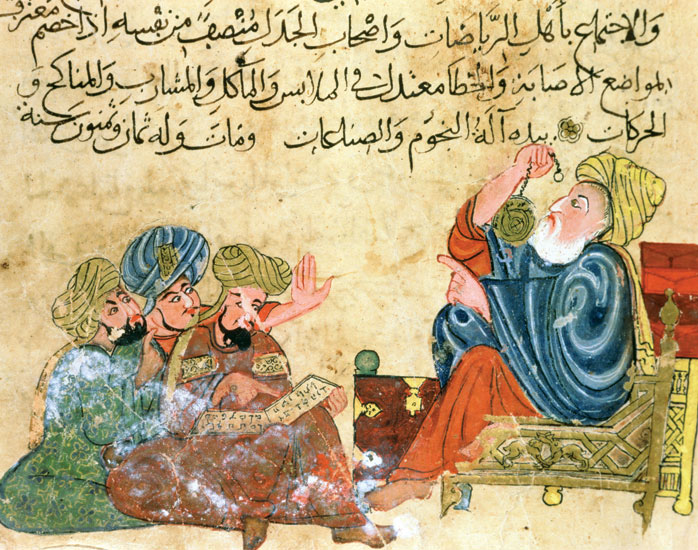 والاجتماع باهل الرياضات واصحاب الجدل منصف من نفسه اذا خصم معترف
لمواضع الاصابة والخطا معتدل في الملابس والمأكل والمشارب والمناكح و
الحركات بيده آلة النجوم والصناعات ومات وله ثمان وثمنون سنة